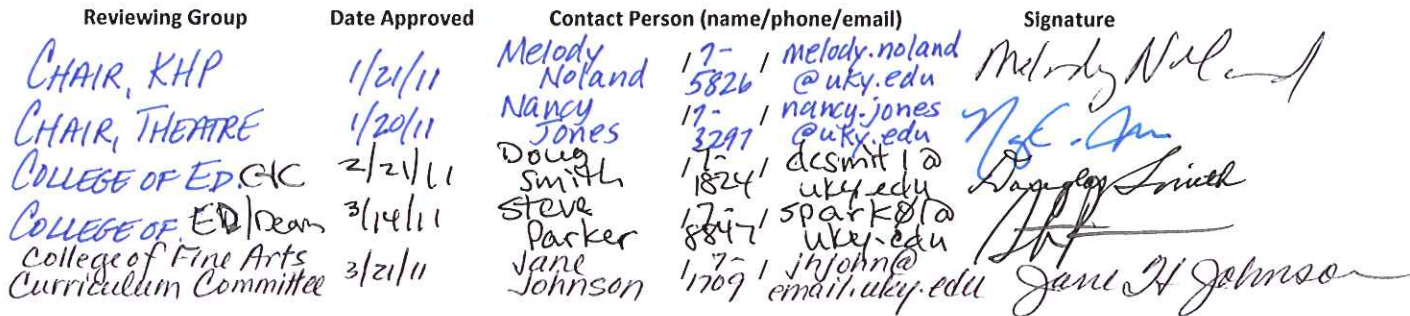 Reviewing Group Date Approved Contact Person (name/phone/email) Signature
CHAIR, KHP 1/21/11 Melody Noland / 7-5826 / melody.noland@uky.edu Melody Noland
CHAIR, THEATRE 1/20/11 Nancy Jones / 7-3297 / nancy.jones@uky.edu
COLLEGE OF ED. C+C 2/21/11 Doug Smith / 7-1824 / dcsmit1@uky.edu Douglas Smith
COLLEGE OF ED/Dean 3/14/11 Steve Parker / 7-8847 / spark01@uky.edu
College of Fine Arts Curriculum Committee 3/21/11 Jane Johnson / 7-1709 / jhjohn@email.uky.edu Jane H Johnson